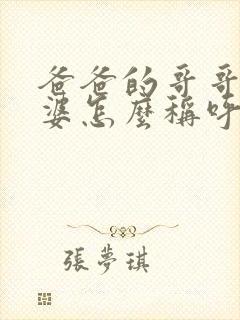 爸爸的哥哥
婆怎麼稱呼
張夢琪